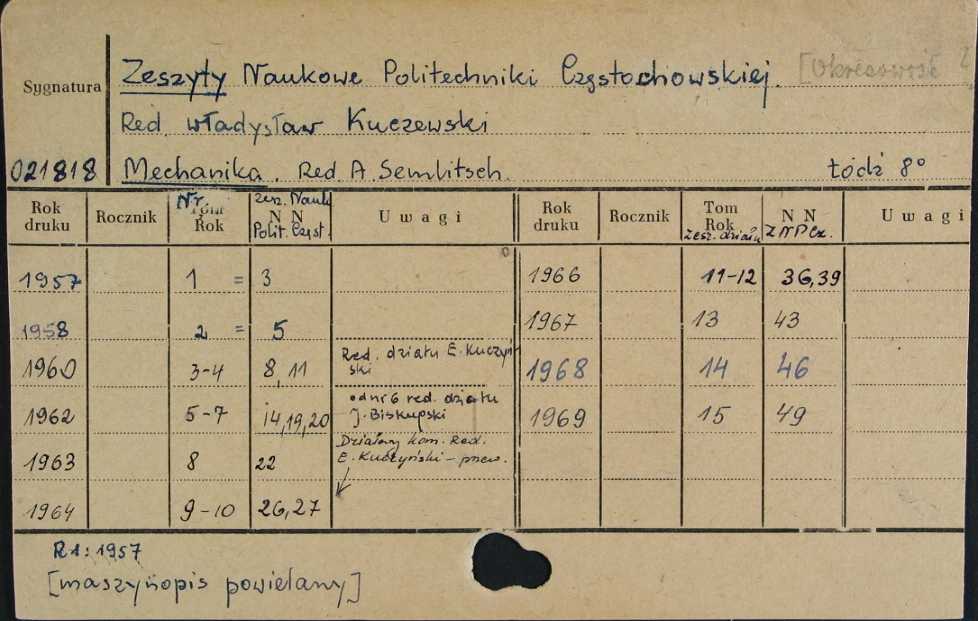 Zeszyty Naukowe Politechniki Częstochowskiej. [Okresowość
Sygnatura
Red. Władysław Kuczewski
021818 Mechanika. Red. A. Semlitsch. Łódź 8°
Rok druku Rocznik Nr. Tom Rok zesz. Nauk N N Polit. Częst. Uwagi Rok druku Rocznik Tom Rok zesz. działu N N Z N P Cz. Uwagi
1957 1 = 3 1966 11-12 36,39
1958 2 = 5 1967 13 43
1960 3-4 8,11 Red. działu E. Kuczyński 1968 14 46
1962 5-7 14,19,20 od nr 6 red. działu J. Biskupski 1969 15 49
1963 8 22 Działowy kom. Red. E. Kuczyński – przew.
1964 9-10 26,27
R 1: 1957
[maszynopis powielany]